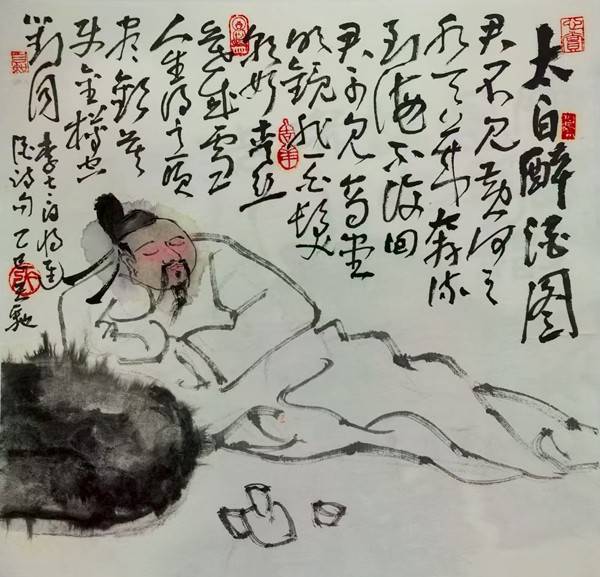 太白醉酒图
君不见黄河之
水天上来奔流
到海不復回
君不见高堂
明镜悲白髮
朝如青丝
暮成雪
人生得意须
盡歡莫
使金樽空
對月
李太白将进
酒诗句